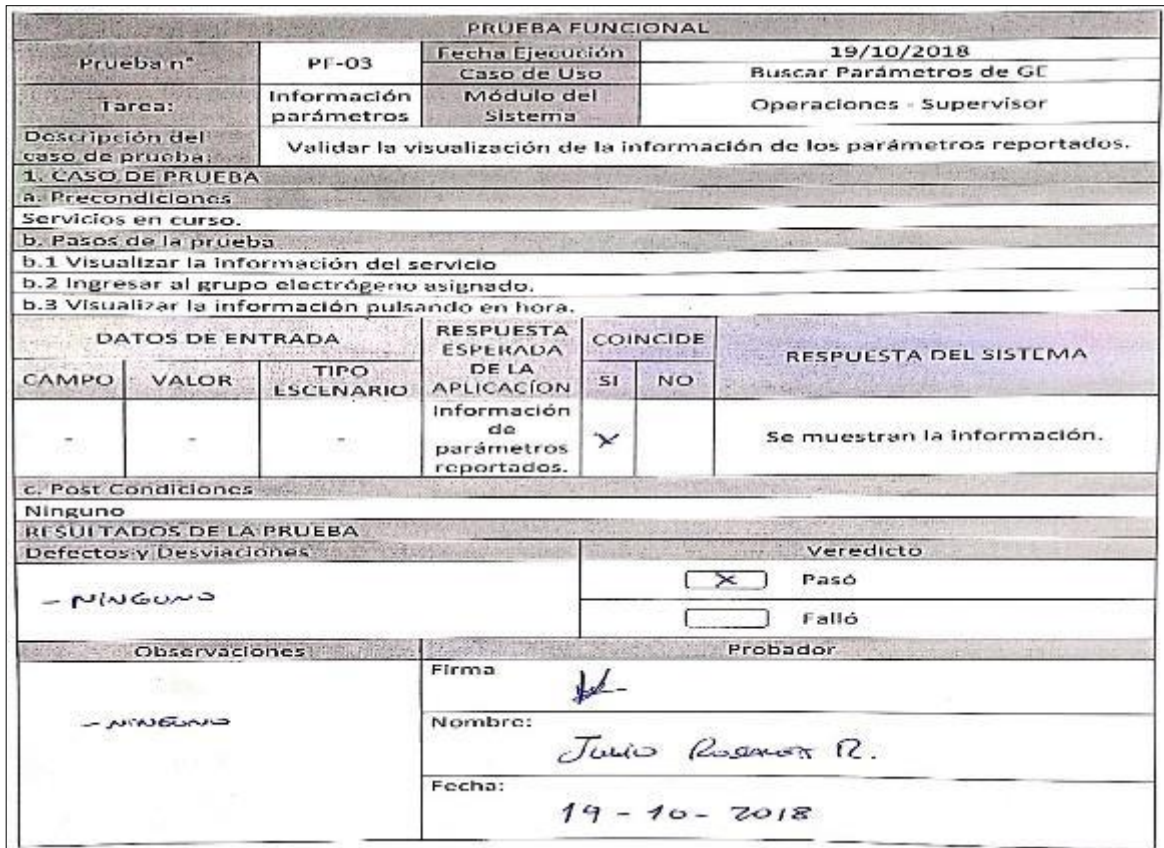 PRUEBA FUNCIONAL
Prueba n° PF-03 Fecha Ejecución 19/10/2018
Caso de Uso Buscar Parámetros de GE
Tarea: Información parámetros Módulo del Sistema Operaciones - Supervisor
Descripción del caso de prueba: Validar la visualización de la información de los parámetros reportados.
1. CASO DE PRUEBA
a. Precondiciones
Servicios en curso.
b. Pasos de la prueba
b.1 Visualizar la información del servicio
b.2 Ingresar al grupo electrógeno asignado.
b.3 Visualizar la información pulsando en hora.
DATOS DE ENTRADA RESPUESTA ESPERADA DE LA APLICACÍON COINCIDE RESPUESTA DEL SISTEMA
CAMPO VALOR TIPO ESCENARIO SI NO
- - - Información de parámetros reportados. X Se muestran la información.
c. Post Condiciones
Ninguno
RESULTADOS DE LA PRUEBA
Defectos y Desviaciones Veredicto
- NINGUNO X Pasó
Falló
Observaciones Probador
Firma
- NINGUNO
Nombre:
Julio R.
Fecha:
19 - 10 - 2018